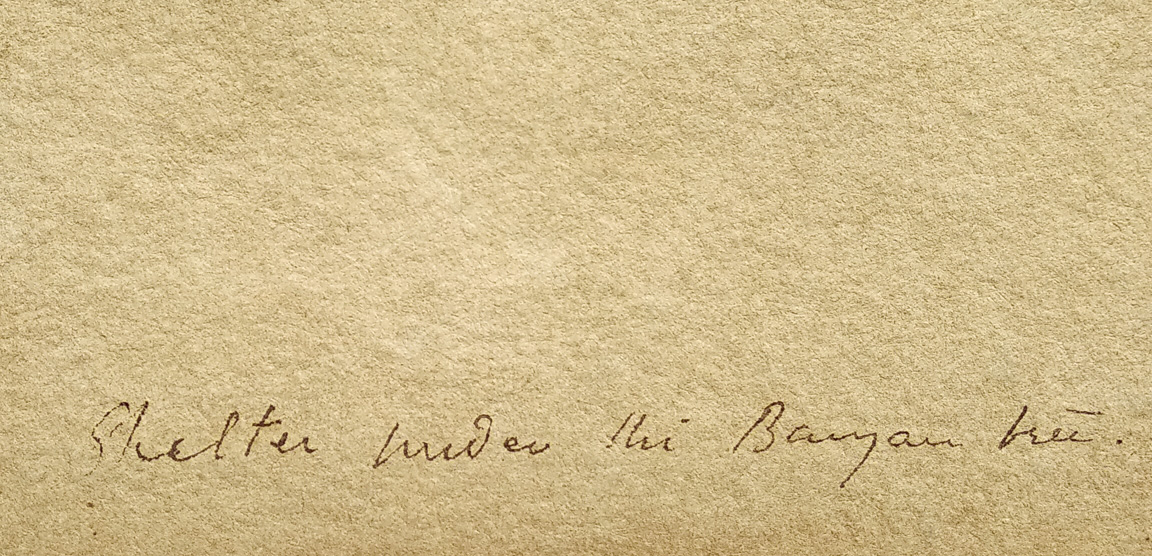 Shelter under the Banyan tree.